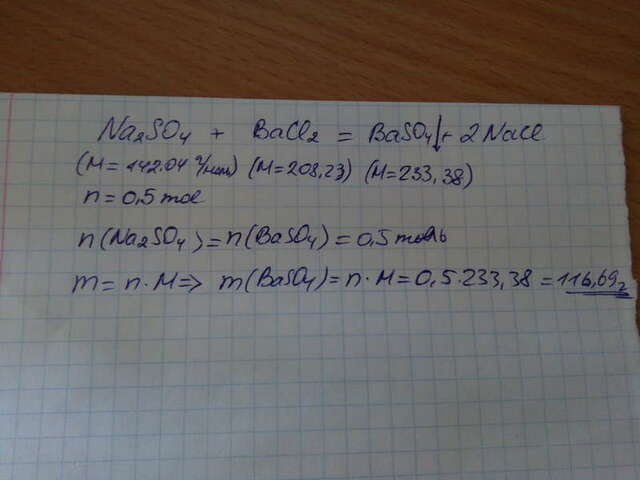 Na₂SO₄ + BaCl₂ = BaSO₄↓ + 2NaCl
(M=142.04 г/моль) (M=208,23) (M=233,38)
n=0,5 mol
n(Na₂SO₄)=n(BaSO₄)=0,5 моль
m=n·M=> m(BaSO₄)=n·M=0,5·233,38=116,69г